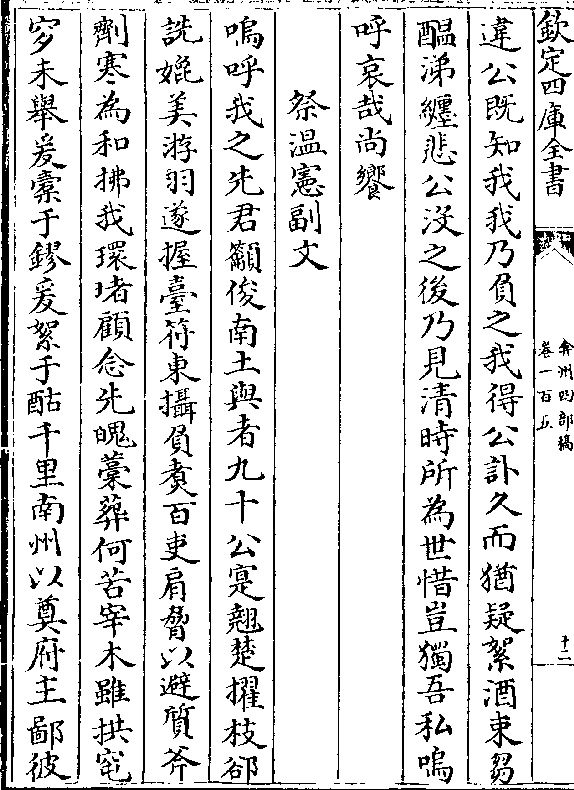 欽定四庫全書
弇州四部稿
卷一百五
十二
違公既知我我乃負之我得公訃久而猶疑絮酒束芻
醖涕纏悲公沒之後乃見清時所為世惜豈獨吾私嗚
呼哀哉尚饗
祭温憲副文
嗚呼我之先君籲俊南土與者九十公寔翹楚擢枝郤
詵媲美游羽遂握臺符東攝負赉百吏肩脅以避質斧
劑寒為和拂我環堵顧念先魄藁葬何苦宰木雖拱窀
穸未舉爰橐于鏐爰絮于酤千里南州以奠府主鄙彼